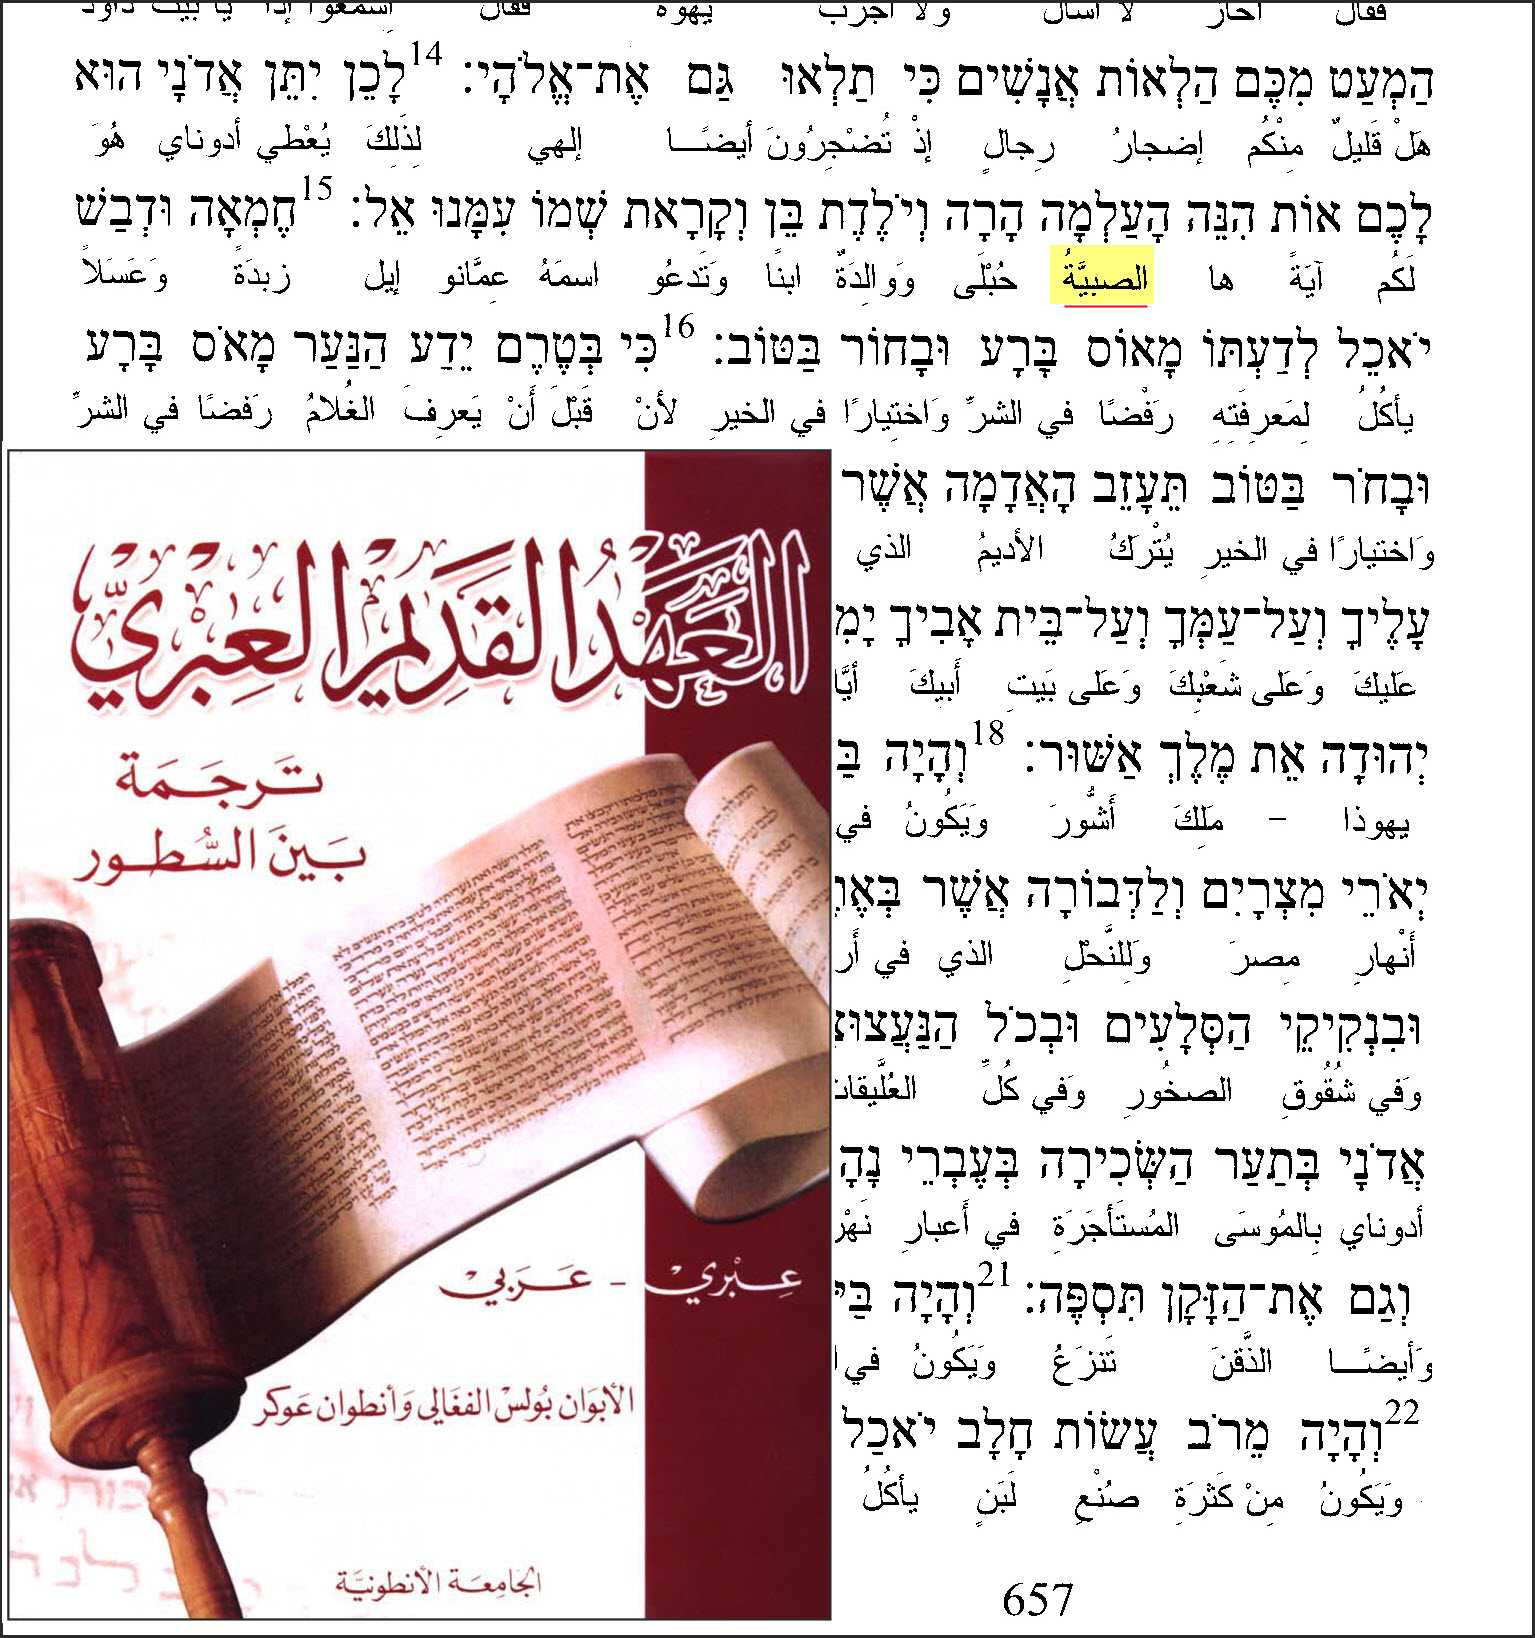 فقال احاز لا اسال ولا اجرب يهوه فقال
הַמְעַט מִכֶּם הַלְאוֹת אֲנָשִׁים כִּי תַלְאוּ גַּם אֶת־אֱלֹהָי׃ 14לָכֵן יִתֵּן אֲדֹנָי הוּא
هَلْ قَليلٌ مِنْكُم إضجارُ رِجالٍ إذْ تُضْجِرُونَ أيضًـــا إلهي لِذَلِكَ يُعْطي أدوناي هُوَ
לָכֶם אוֹת הִנֵּה הָעַלְמָה הָרָה וְיֹלֶדֶת בֵּן וְקָרָאת שְׁמוֹ עִמָּנוּ אֵל׃ 15חֶמְאָה וּדְבַשׁ
لَكُم آيَةً ها الصبيَّةُ حُبْلَى وَوالِدَةٌ ابنًا وَتَدعُو اسمَهُ عِمَّانو إيل زبدَةً وَعَسَلاً
יֹאכֵל לְדַעְתּוֹ מָאוֹס בָּרָע וּבָחוֹר בַּטּוֹב׃ 16כִּי בְּטֶרֶם יֵדַע הַנַּעַר מָאֹס בָּרָע
يأكُلُ لِمَعرِفَتِهِ رَفْضًا في الشرِّ وَاختِيارًا في الخيرِ لأنْ قَبْلَ أنْ يَعرِفَ الغُلامُ رَفضًا في الشرِّ
וּבָחֹר בַּטּוֹב תֵּעָזֵב הָאֲדָמָה אֲשֶׁר
وَاختيارًا في الخيرِ يُتْرَكُ الأديمُ الذي
עָלֶיךָ וְעַל־עַמְּךָ וְעַל־בֵּית אָבִיךָ יָמִ
عَليكَ وَعَلى شَعْبِكَ وَعَلى بَيتِ أَبيكَ أيَّا
יְהוּדָה אֵת מֶלֶךְ אַשּׁוּר׃ 18וְהָיָה בַּ
يهوذا – مَلِكَ أَشُّورَ وَيَكُونُ في
יְאֹרֵי מִצְרָיִם וְלַדְּבוֹרָה אֲשֶׁר בְּאֶ
أنْهارِ مِصرَ وَلِلنَّحْلِ الذي في أَر
וּבִנְקִיקֵי הַסְּלָעִים וּבְכֹל הַנַּעֲצוּצ
وَفي شُقُوقِ الصخُورِ وَفي كُلِّ العُلَّيقات
אֲדֹנָי בְּתַעַר הַשְּׂכִירָה בְּעֶבְרֵי נָהָ
أدوناي بِالمُوسَى المُستَأجَرَةِ في أَعبارِ نَهْر
וְגַם אֶת־הַזָּקָן תִּסְפֶּה׃ 21וְהָיָה בַּי
وَأيضًـــا الذَّقنَ تَنزَعُ وَيَكُونُ في ا
22וְהָיָה מֵרֹב עֲשׂוֹת חָלָב יֹאכַל
وَيَكُونُ مِنْ كَثرَةِ صُنْعِ لَبَنٍ يأكُلُ
657
العَهْدُ القَديمُ العِبْريّ
تَرجَمَة
بَينَ السُّطُور
عِبْري - عَرَبي
الأبَوَان بُولس الفغَالي وَأنطوان عَوكر
الجَامِعَة الأنطونيَّة